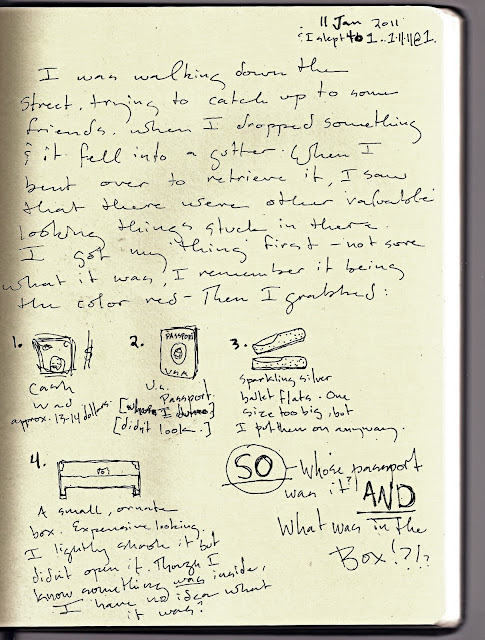 11 Jan 2011
I slept to 1. 1.11.11@1.
I was walking down the
street, trying to catch up to some
friends, when I dropped something
& it fell into a gutter. When I
bent over to retrieve it, I saw
that there were other valuable
looking things stuck in there.
I got my "thing" first - not sure
what it was, I remember it being
the color red - Then I grabbed:
1.
Cash
Wad
approx. 13-14 dollars.
2.
PASSPORT
USA
U.S.
Passport.
[whose I dunno]
[didn't look.]
3.
sparkling silver
ballet flats. One
size too big, but
I put them on anyway.
4.
A small, ornate
box. Expensive looking.
I lightly shook it but
didn't open it. Though I
know something was inside,
I have no idea what
it was?
SO - Whose passport
was it?! AND
What was in the
Box!?!?